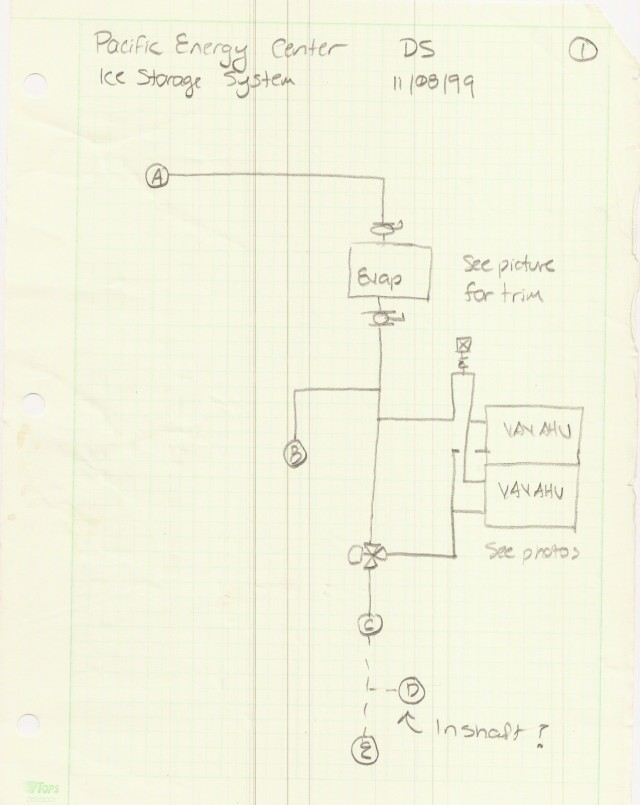 Pacific Energy Center DS 1
Ice Storage System 11/08/99
A
Evap
See picture
for trim
B
VAV AHU
VAV AHU
See photos
C
D
In shaft?
E
TOPS